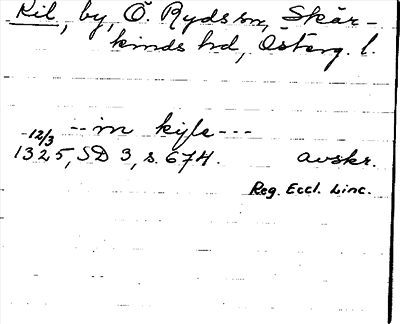 Kil, by, Ö. Ryds sn, Skär-
kinds hd, Österg. l.
--in kyle---
12/3
1325, SD 3, s. 674. avskr.
Reg. Eccl. Linc.